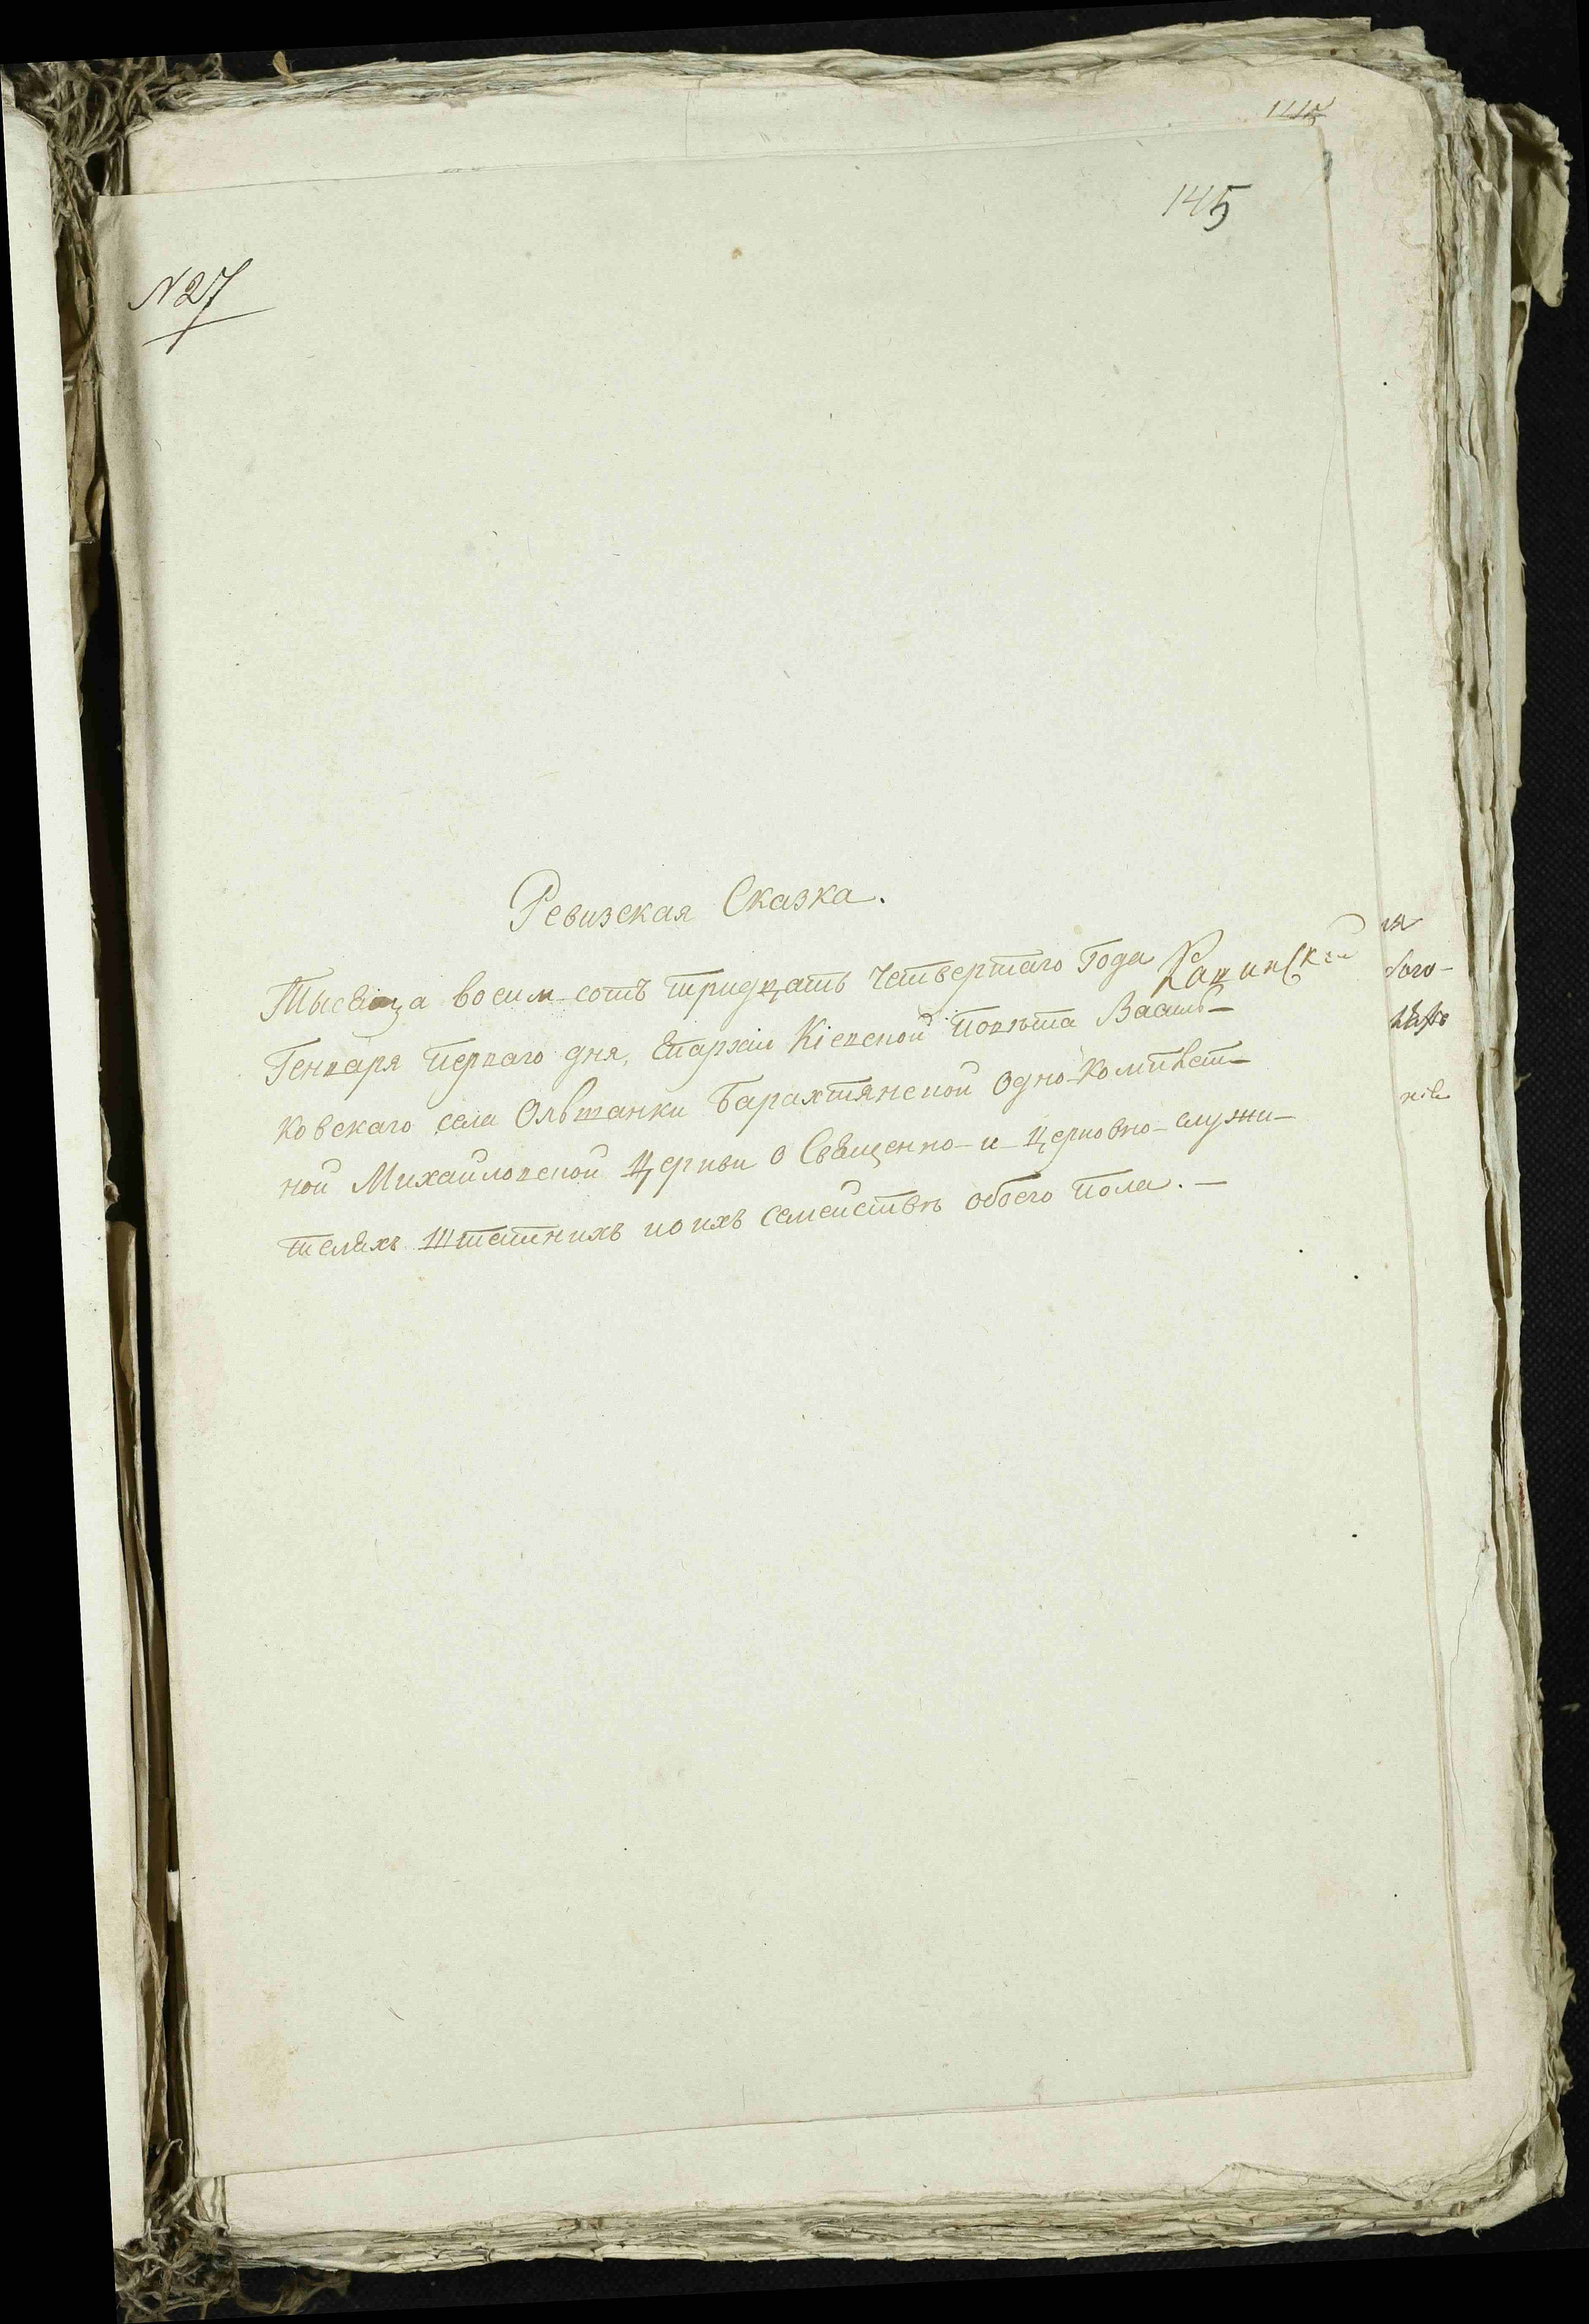 1115
145
N 27
Ревизская Сказка.
Тысяща восим сотъ тридцать Четвертаго Года
Генваря перваго дня, Епархіи Кіевской повѣта Василь-
ковскаго села Ольшанки Барахтянской Одно-комплект-
ной Михайловской Церкви о Священно- и Церковно-служи-
теляхъ Штатнихъ и о ихъ семействѣ обоего пола. -